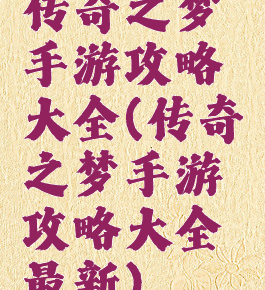 传奇之梦
手游攻略
大全(传奇
之梦手游
攻略大全
最新)